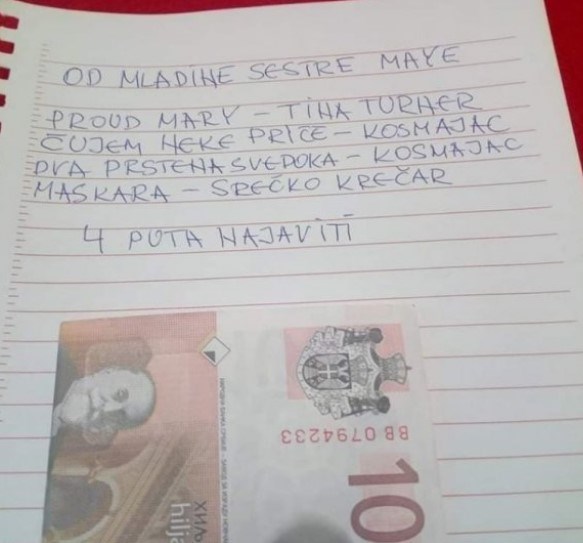 OD MLADINE SESTRE MAYE
PROUD MARY – TINA TURNER
ČUJEM NEKE PRIČE – KOSMAJAC
DVA PRSTENA SVEDOKA – KOSMAJAC
MASKARA – SREČKO KREČAR
4 PUTA NAJAVITI
BB 0794233
10
ХИЉ
hilja